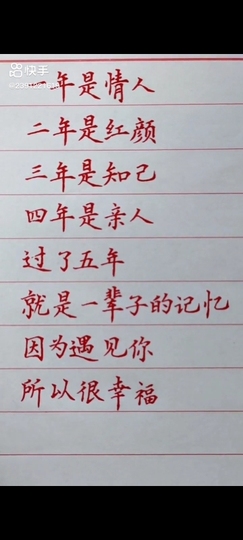 快手
一年是情人
二年是红颜
三年是知己
四年是亲人
过了五年
就是一辈子的记忆
因为遇见你
所以很幸福